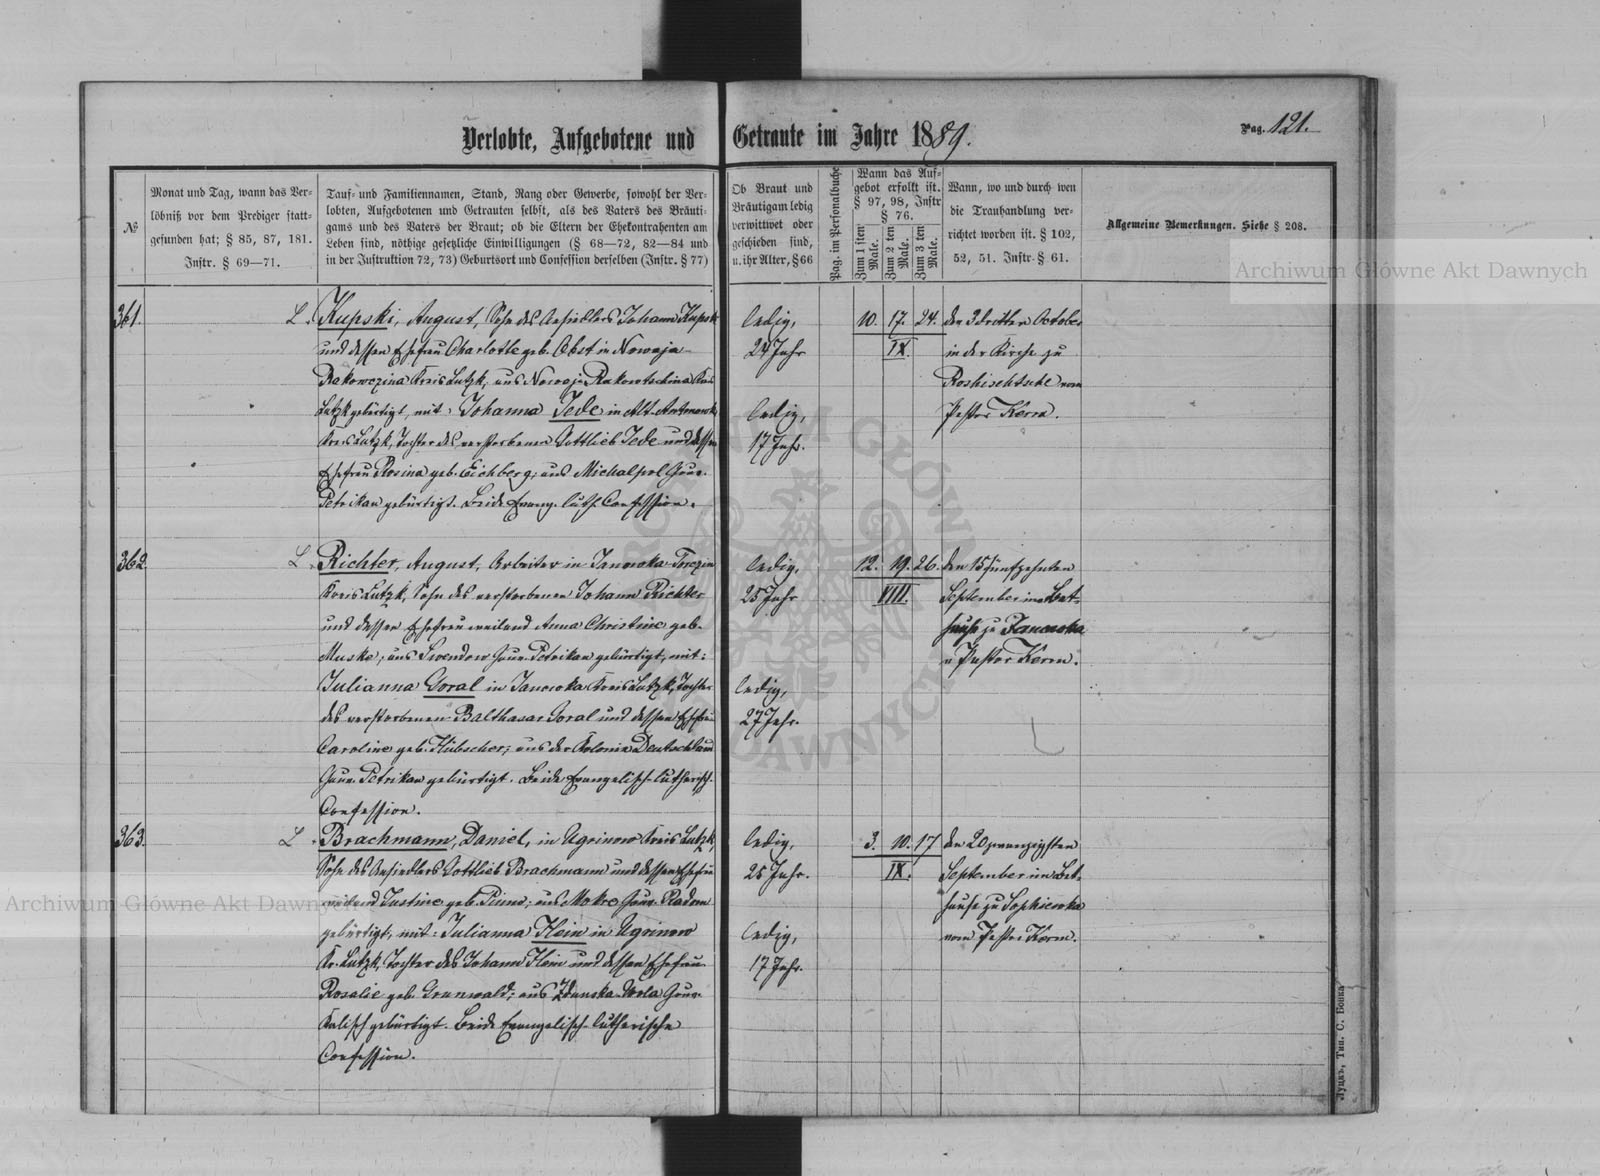 Verlobte, Aufgebotene und Getraute im Jahre 1889.
Pag. 121.
№
Monat und Tag, wann das Ver-
löbniß vor dem Prediger statt-
gefunden hat; § 85, 87, 181.
Instr. § 69—71.
Tauf- und Familiennamen, Stand, Rang oder Gewerbe, sowohl der Ver-
lobten, Aufgebotenen und Getrauten selbst, als des Vaters des Bräuti-
gams und des Vaters der Braut; ob die Eltern der Ehekontrahenten am
Leben sind, nöthige gesetzliche Einwilligungen (§ 68—72, 82—84 und
in der Instruktion 72, 73) Geburtsort und Confession derselben (Instr. § 77)
Ob Braut und
Bräutigam ledig
verwittwet oder
geschieden sind,
u. ihr Alter, § 66
Pag. im Personalbuche
Wann das Auf-
gebot erfolgt ist.
§ 97, 98, Instr
§ 76.
Zum 1 sten
Male.
Zum 2 ten
Male.
Zum 3 ten
Male.
Wann, wo und durch wen
die Trauhandlung ver-
richtet worden ist. § 102,
52, 51. Instr. § 61.
Allgemeine Bemerkungen. Siehe § 208.
361.
L.
Kupski, August, Sohn des Ansiedlers Johann Kupski
und dessen Ehefrau Charlotte geb. Obst in Nowaja-
Rakowczina Kreis Lutzk, aus Nowaja Rakowtschina Kreis
Lutzk gebürtigt, mit: Johanna Jede in Alt-Antonowka
Kreis Lutzk, Tochter des verstorbenen Gottlieb Jede und dessen
Ehefrau Rosina geb. Eichberg; aus Michalpol Gouv.
Petrikau gebürtigt. Beide Evang. luth. Confession.
ledig,
24 Jahr
ledig,
17 Jahr.
10. 17. 24.
IX.
den 3 dritten October
in der Kirche zu
Roshischtsche vom
Pastor Kern.
362.
L.
Richter, August, Arbeiter in Janowka
Kreis Lutzk, Sohn des verstorbenen Johann Richter
und dessen Ehefrau weiland Anna Christine geb.
Muske, aus Swendow Gouv. Petrikau gebürtigt, mit:
Julianna Goral in Janowka Kreis Lutzk, Tochter
des verstorbenen Balthasar Goral und dessen Ehefrau
Caroline geb. Hübscher; aus der Kolonie
Gouv. Petrikau gebürtigt. Beide Evangelisch-lutherisch.
Confession.
ledig,
25 Jahr
ledig,
27 Jahr.
12. 19. 26.
VIII.
den 15 fünfzehnten
September im Bet-
hause zu Janowka
v. Pastor Kern.
363.
L.
Brachmann, Daniel, in Ugrinow Kreis Lutzk,
Sohn des Ansiedlers Gottlieb Brachmann und dessen Ehefrau
weiland Justine geb. Pinno; aus Mokre Gouv. Radom
gebürtigt, mit: Julianna Hein in Ugrinow
Kr. Lutzk, Tochter des Johann Hein und dessen Ehefrau
Rosalie geb. Grunwald; aus Zdunska-Wola Gouv.
Kalisch gebürtigt. Beide Evangelisch-lutherische
Confession.
ledig,
25 Jahr.
ledig,
17 Jahr.
3. 10. 17
IX.
den 20 zwanzigsten
September im Bet-
hause zu Sophiewka
vom Pastor Kern.
Луцкъ, Тип. С. Бонка
Archiwum Główne Akt Dawnych
Archiwum Główne Akt Dawnych